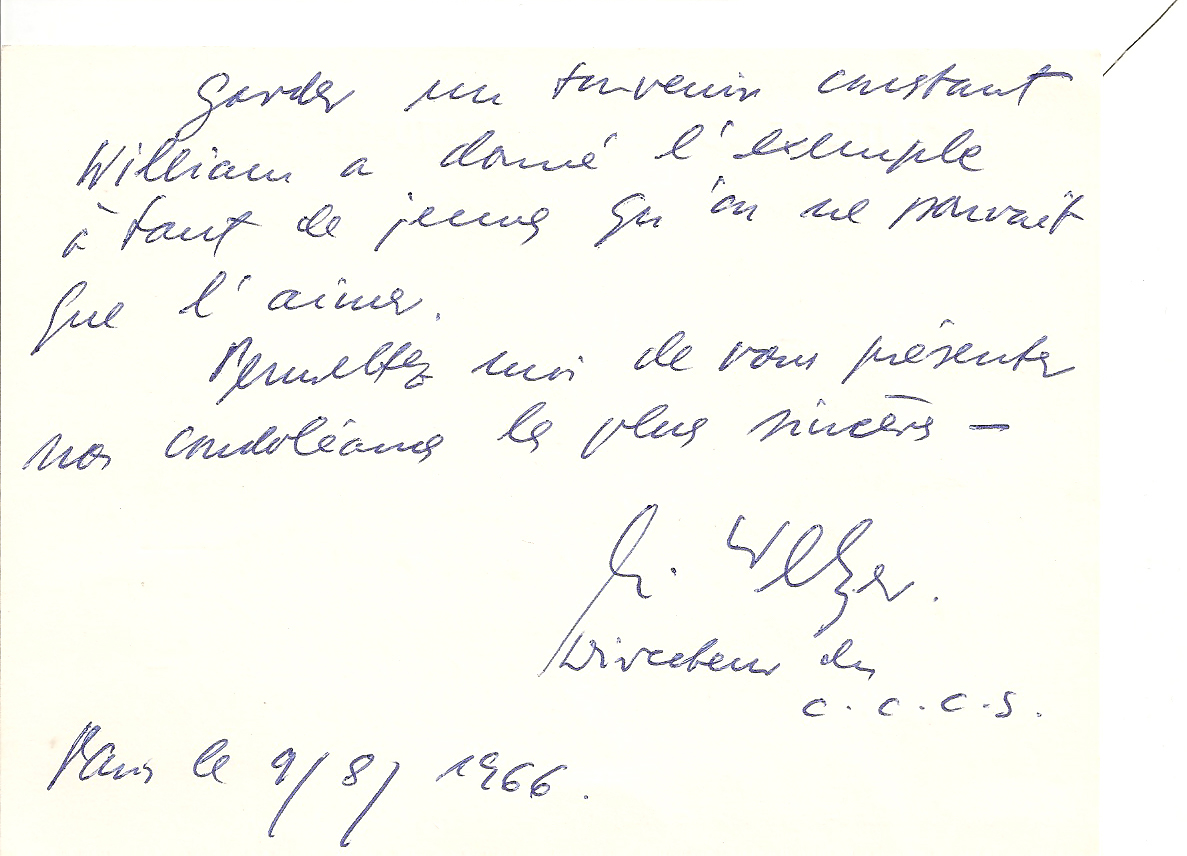 garder un souvenir constant
William a donné l'exemple
à tant de jeunes qu'on ne pouvait
que l'aimer.
Permettez moi de vous présenter
nos condoléances les plus sincères —
Welzer.
Directeur du
C.C.C.S.
Paris le 9/8/1966.